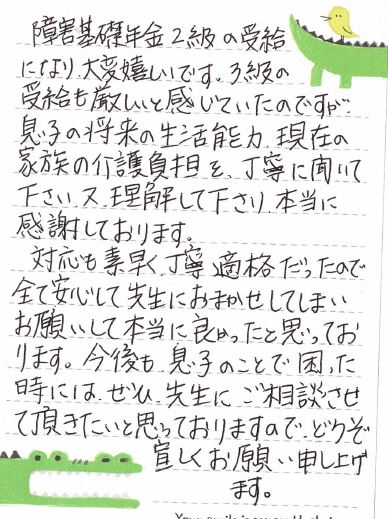 障害基礎年金2級の受給
になり、大変嬉しいです。3級の
受給も厳しいと感じていたのですが、
息子の将来の生活能力、現在の
家族の介護負担を、丁寧に聞いて
下さい、又、理解して下さり、本当に
感謝しております。
対応も素早く、丁寧、適格だったので
全て安心して先生におまかせしてしまい
お願いして本当に良かったと思ってお
ります。今後も、息子のことで困った
時には、ぜひ、先生にご相談させ
て頂きたいと思っておりますので、どうぞ
宜しくお願い申し上げ
ます。